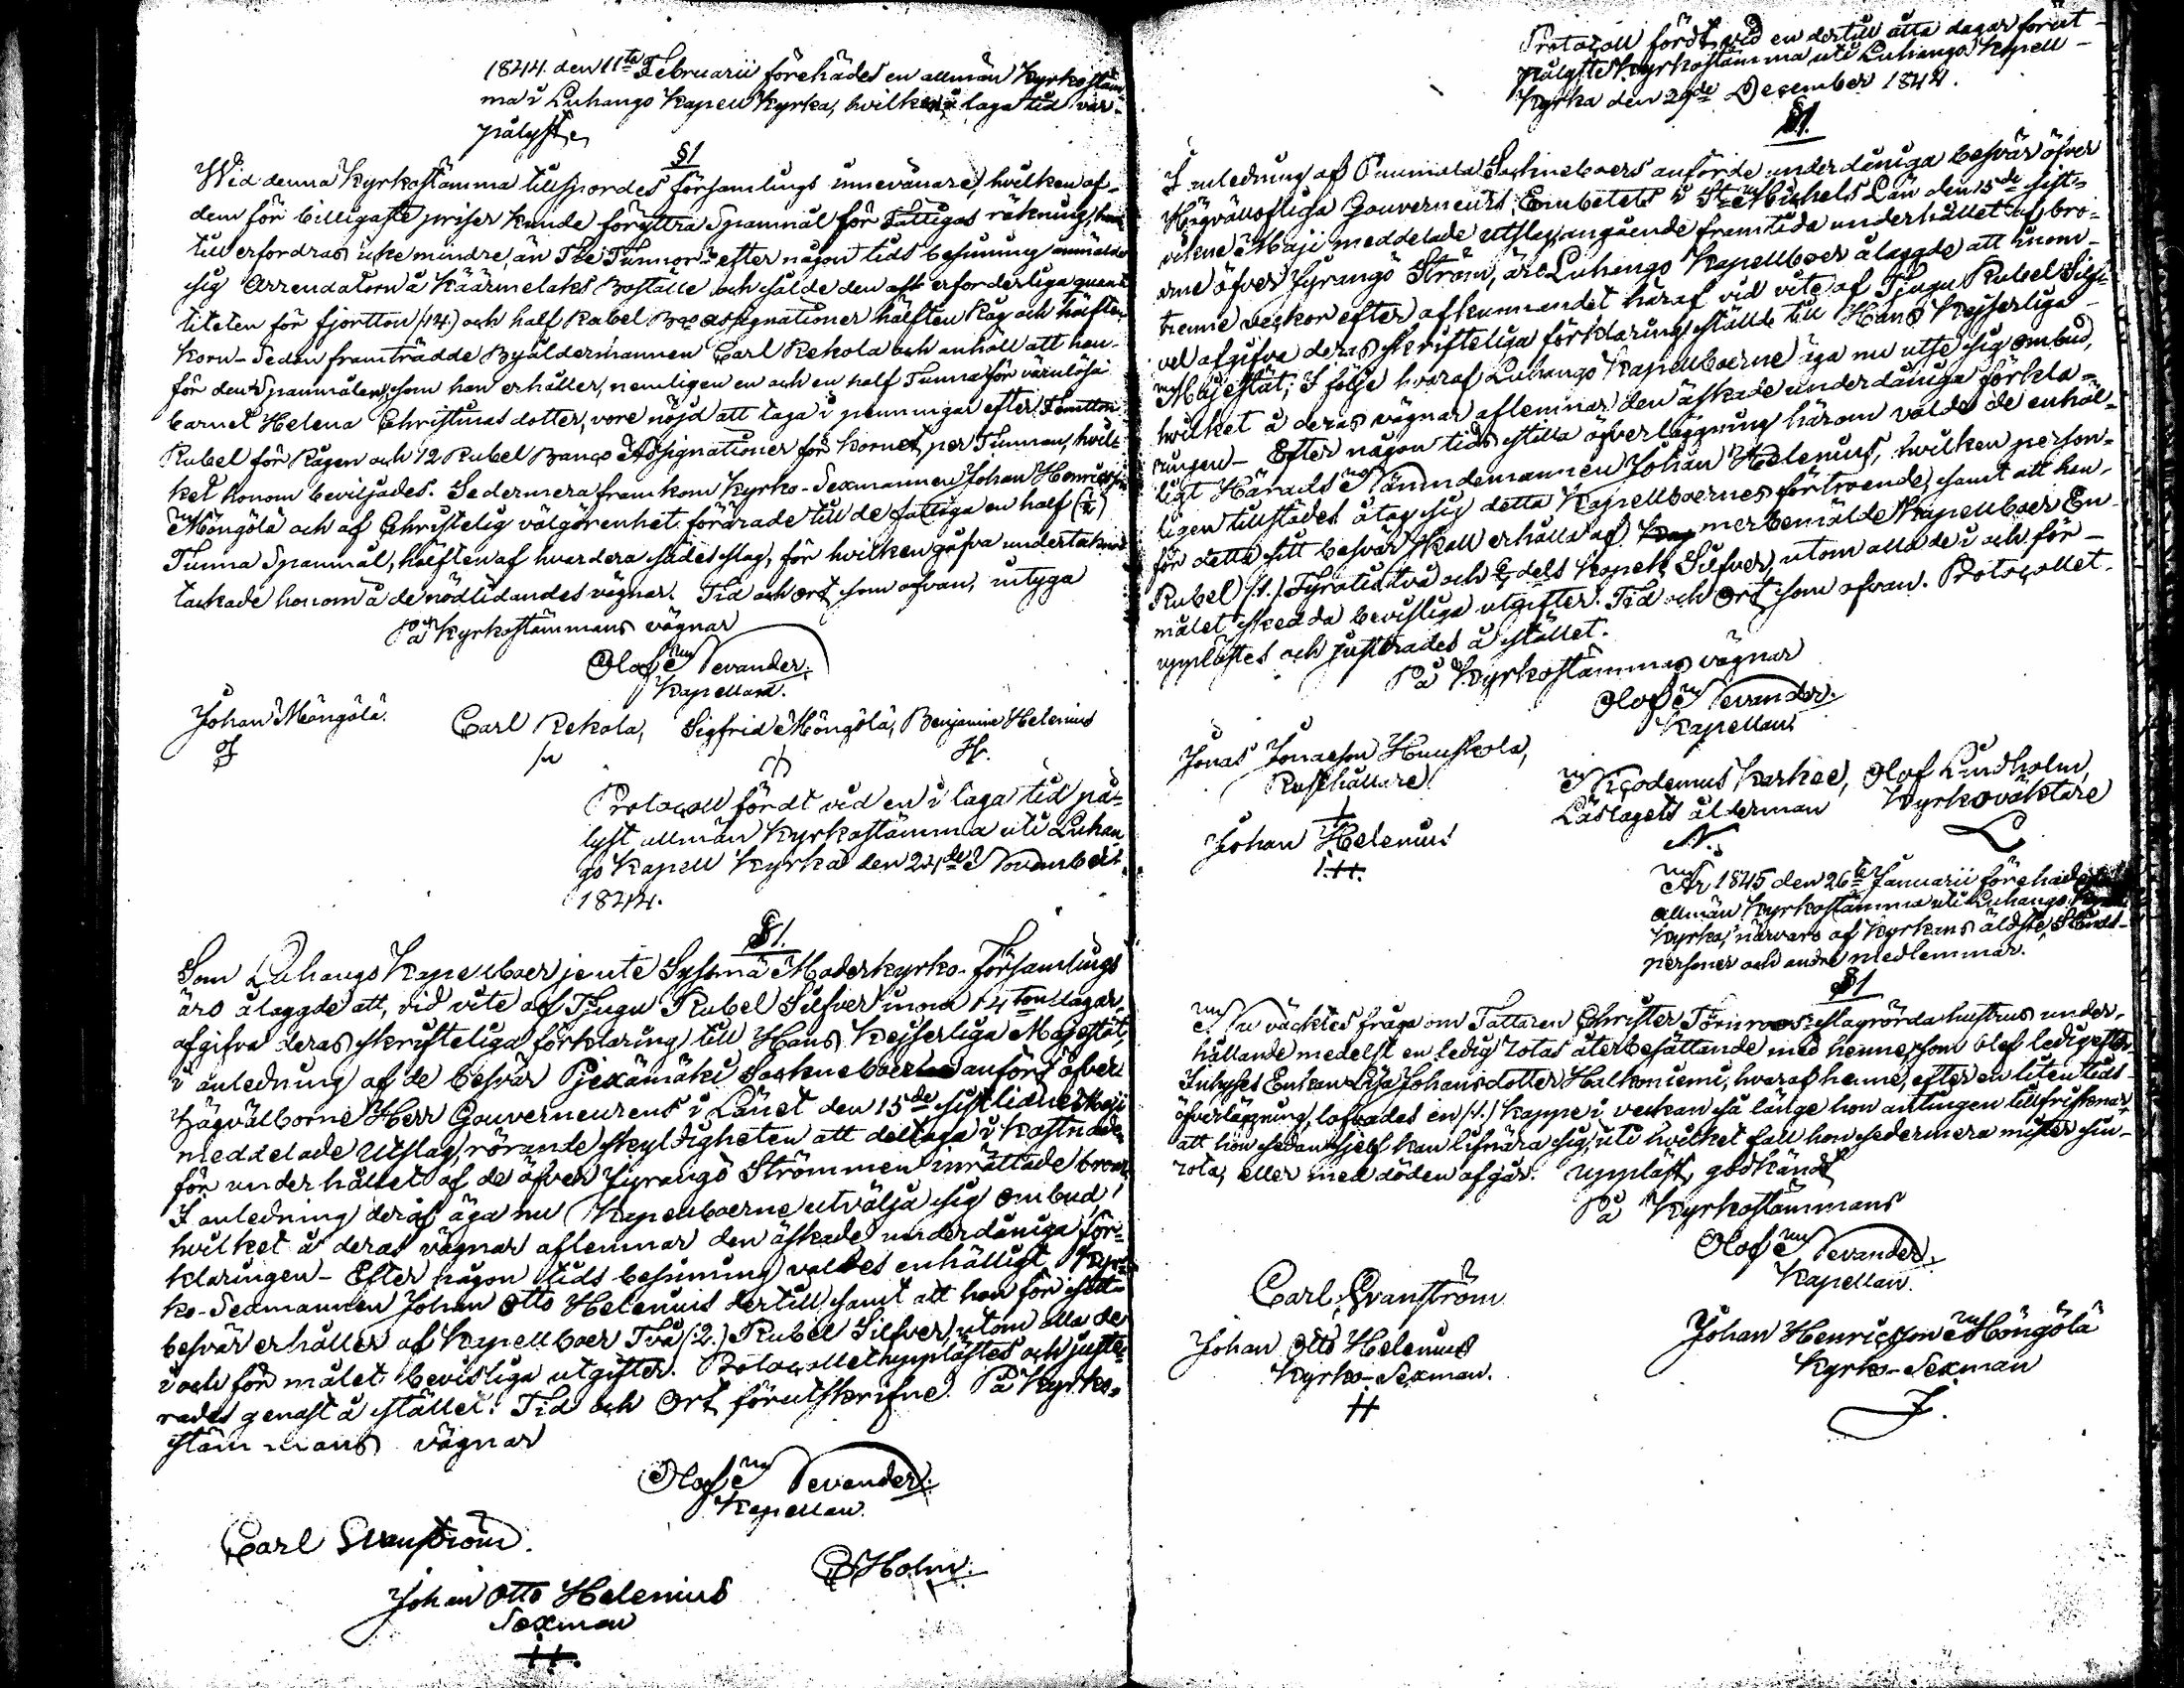 1844. den 11te Februarii förehades en allmän Kyrkostäm-
ma i Luhango Kapell Kyrka, hvilken i laga tid var
pålyst.
§1
Wid denna Kyrkostämma tillspordes församlings innevånare, hvilken af
dem för billigaste priser kunde försträ Spanmål för Fattigas räkning, hvar-
till erfordras icke mindre, än Tre Tunnor efter någon tids besinning anmälde
sig Arrendatorn å Käärmelaks Boställe och sålde den erforderliga quan-
titeten för fjortton (14.) och half Rubel Bco Assignationer hälften Råg och hälften
Korn – Sedan framträdde Byåldermannen Carl Rekola och anhöll att han
för den Spanmålen, som han erhåller, nemligen en och en half Tunna för värnlösa
barnet Helena Christinas dotter, vore nöjd att taga i penningar efter Femtton
Rubel för Rågen och 12 Rubel Banco Assignationer för Kornet per Tunnan, hvil-
ket honom beviljades. Sedermera framkom Kyrko-Sexmannen Johan Henricsson
Möngölä och af Christelig välgörenhet förärade till de fattiga en half (½)
Tunna Spanmål, hälften af hvardera sädesslag, för hvilken gåfva undertecknad
tackade honom å de nödlidandes vägnar. Tid och ort som ofvan, intyga
På Kyrkostämmans vägnar
Olof Nevander.
Kapellan.
Johan Möngölä.
Carl Rekola, Sigfrid Möngölä, Benjamin Helenius
H.
Protocoll fördt vid en i laga tid på-
lyst allmän Kyrkostämma uti Luhan
go Kapell Kyrka den 24de November
1844.
§1.
Som Luhango Kapellboer jemte Sysmä Moderkyrko-Församlings
äro ålaggde att, vid vite af Tjugu Rubel Silfver inom 14 ton dagar
afgifva deras skrifteliga förklaring till Hans Kejserliga Majestät,
i anledning af de besvär Pjexämäki Sockneboer anfört öfver
Högvälborne Herr Gouverneurens i Länet den 15de sistlidne Maji
meddelade Utslag, rörande skyldigheten att deltaga i Kostnaden
för underhållet af de öfver Jyrängö Strömmen inrättade broar
I anledning deraf äga nu Kapellboerne utvälja sig ombud,
hvilket å deras vägnar aflemnar den äskade underdåniga för-
klaringen – Efter någon tids besinning valdes enhälligt Kyr-
ko-Sexmannen Johan Otto Helenius dertill samt att han för sitt
besvär erhåller af Kapellboer Två (2.) Rubel Silfver, utom alla de
i och för målet bevisliga utgifter. Protocollet upplästes och juste-
rades genast å stället. Tid och Ort förutskrifne. På Kyrko-
stämmans vägnar
Olof Nevander.
Kapellan.
Carl Svanström.
Holm.
Johan Otto Helenius
Sexman
Protocoll fördt vid en dertill åtta dagar förut
pålyste Kyrkostämma uti Luhango Kapell-
Kyrka den 29de December 1844.
§1.
I anledning af Puumala Sockneboers anförde underdåniga besvär öfver
Gouverneurs Embetets i St Michels Län den 15de sist-
vikne Maji meddelade utslag, angående framtida underhållet af bro-
arne öfver Jyrängö Ström, äro Luhango Kapellboer ålaggde att inom
trenne veckor efter afkunnandet häraf vid vite af Tjugu Rubel Silf-
ver afgifva deras skrifteliga förklaring ställd till Hans Kejserliga
Majestät; I följe hvaraf Luhango Kapellboerne äga nu utse sig ombud,
hvilket å deras vägnar aflemnar den äskade underdåniga förkla-
ringen – Efter någon tids stilla öfverläggning härom valde de enhäl-
ligt Härads Nämndemannen Johan Helenius, hvilken person-
ligen tillstädes åtog sig detta Kapellboernes förtroende, samt att han
för detta sitt besvär skall erhålla af merbemälde Kapellboer En
Rubel (1.) Fyratiotvå och dels Kopek Silfver, utom alla de i och för
målet skedda bevisliga utgifter. Tid och Ort som ofvan. Protocollet
upplästes och justerades å stället.
På Kyrkostämmas vägnar
Olof Nevander.
Kapellan.
Jonas Jonasson Huuskola,
Rusthållare
Nicodemus Karkee, Olof Lindholm,
Låslagets ålderman Kyrkoväktare
N. L
Johan Helenius
År 1845 den 26te Januarii förehades
allmän Kyrkostämma uti Luhango
Kyrka, närvaro af Kyrkans äldste, Stånds-
personer och andre medlemmar.
§1
Nu väcktes fråga om Tattaren Christer Törnroos slagrörda hustrus under-
hållande medelst en ledig rotas återbesättande med henne, som blef ledig efter
Inhyses Enkan Lisa Johansdotter Halkoniemi, hvaraf henne, efter en liten tids
öfverläggning, lofvades en (1.) kappe i veckan så länge hon antingen tillfrisknar,
att hon sedan sjelf kan lifnära sig, uti hvilket fall hon sedermera mister sin
rota, eller med döden afgår. Uppläst, godkändt
På Kyrkostämmans
Olof Nevander.
Kapellan.
Carl Svanström
Johan Otto Helenius
Kyrko-Sexman.
Johan Henricsson Möngölä
Kyrko-Sexman